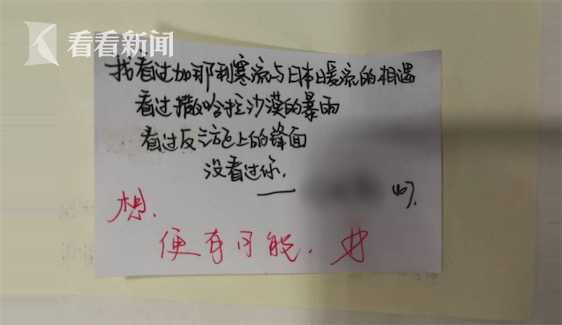 看看新闻
我看过加那利寒流与日本暖流的相遇
看过撒哈拉沙漠的暴雨
看过反气旋上的锋面
没看过你.
——
想.
便有可能.